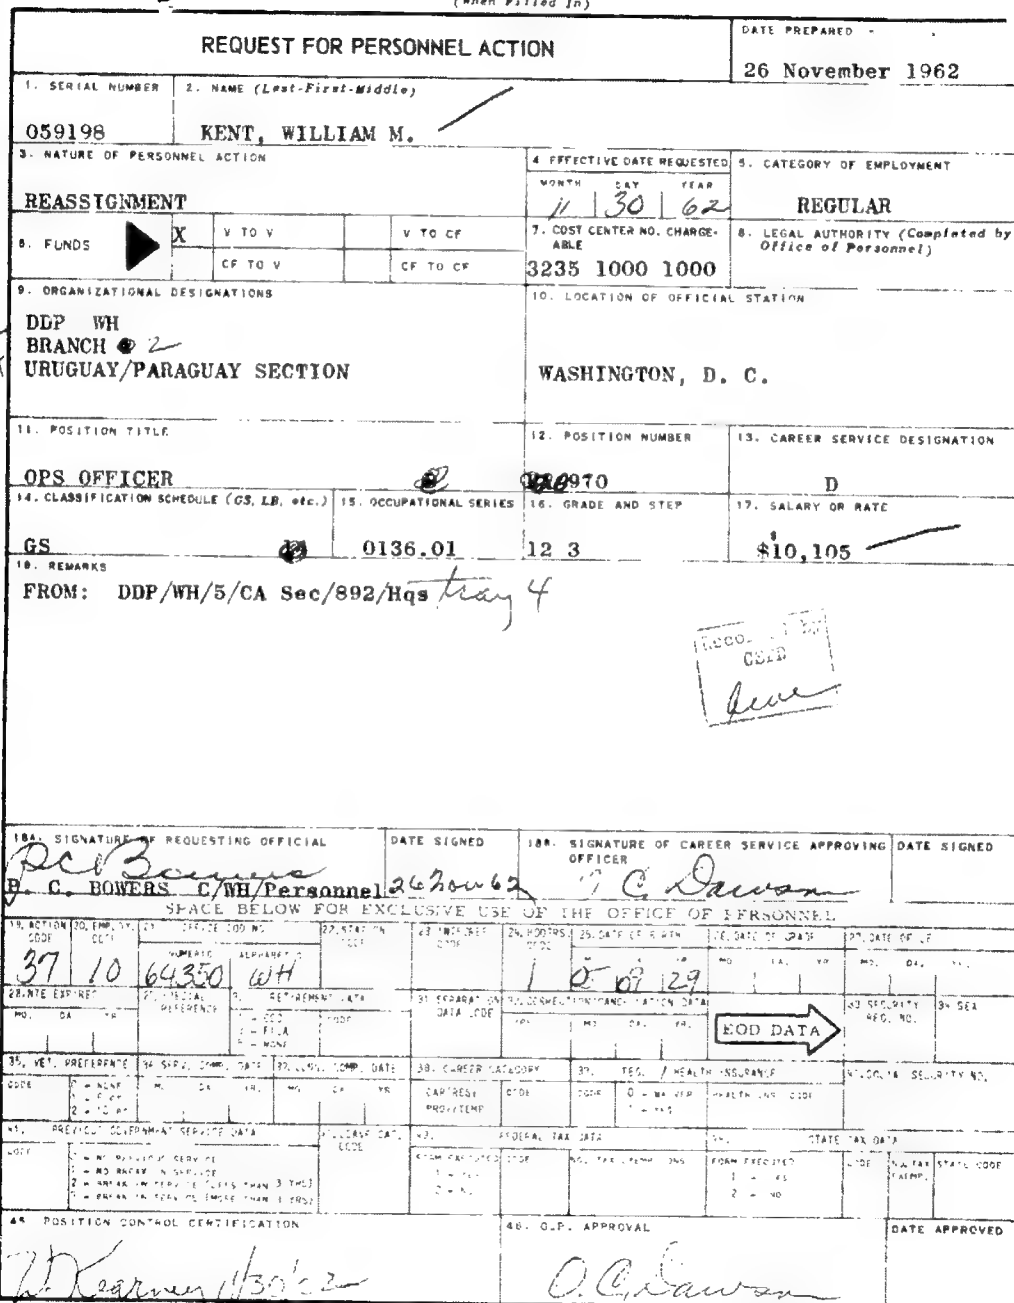 (When Filled In)
REQUEST FOR PERSONNEL ACTION
DATE PREPARED
26 November 1962
1. SERIAL NUMBER
059198
2. NAME (Last-First-Middle)
KENT, WILLIAM M.
3. NATURE OF PERSONNEL ACTION
REASSIGNMENT
4 EFFECTIVE DATE REQUESTED
MONTH DAY YEAR
11 30 62
5. CATEGORY OF EMPLOYMENT
REGULAR
6. FUNDS
X V TO V
V TO CF
CF TO V
CF TO CF
7. COST CENTER NO. CHARGE-
ABLE
3235 1000 1000
8. LEGAL AUTHORITY (Completed by
Office of Personnel)
9. ORGANIZATIONAL DESIGNATIONS
DDP WH
BRANCH 2
URUGUAY/PARAGUAY SECTION
10. LOCATION OF OFFICIAL STATION
WASHINGTON, D. C.
11. POSITION TITLE
OPS OFFICER
12. POSITION NUMBER
970
13. CAREER SERVICE DESIGNATION
D
14. CLASSIFICATION SCHEDULE (GS, LB, etc.)
GS
15. OCCUPATIONAL SERIES
0136.01
16. GRADE AND STEP
12 3
17. SALARY OR RATE
$10,105
18. REMARKS
FROM: DDP/WH/5/CA Sec/892/Hqs tray 4
CSPD
18A. SIGNATURE OF REQUESTING OFFICIAL
C. BOWERS C/WH/Personnel
DATE SIGNED
26 Nov 62
18B. SIGNATURE OF CAREER SERVICE APPROVING
OFFICER
C Dawson
DATE SIGNED
SPACE BELOW FOR EXCLUSIVE USE OF THE OFFICE OF PERSONNEL
19. ACTION
CODE
37
20. EMPLOY.
CODE
10
21. OFFICE CODING
NUMERIC ALPHABETIC
64350 WH
22. STATION
CODE
23. INTEGREE
CODE
24. HDQTRS.
CODE
1
25. DATE OF BIRTH
05 09 29
26. DATE OF GRADE
MO. DA. YR.
27. DATE OF LEI
MO. DA. YR.
28. NTE EXPIRES
MO. DA. YR.
29. SPECIAL
REFERENCE
30. RETIREMENT DATA
CODE
31. SEPARATION
DATA CODE
32. CORRECTION/CANCELLATION DATA
MO. DA. YR.
EOD DATA
33. SECURITY
REQ. NO.
34. SEX
35. VET. PREFERENCE
CODE
36. SERV. COMP. DATE
MO. DA. YR.
37. LONG. COMP. DATE
MO. DA. YR.
38. CAREER CATEGORY
CAR/RESV
PROV/TEMP
CODE
39. FEGLI / HEALTH INSURANCE
CODE
0 - WAIVER
1 - YES
HEALTH INS. CODE
40. SOCIAL SECURITY NO.
41. PREVIOUS GOVERNMENT SERVICE DATA
CODE
0 - NO PREVIOUS SERVICE
1 - NO BREAK IN SERVICE
2 - BREAK IN SERVICE (LESS THAN 3 YRS)
3 - BREAK IN SERVICE (MORE THAN 3 YRS)
42. LEAVE CAT.
CODE
43. FEDERAL TAX DATA
FORM EXECUTED
1 - YES
2 - NO
CODE
NO. TAX EXEMPTIONS
44. STATE TAX DATA
FORM EXECUTED
1 - YES
2 - NO
CODE
NO. TAX
EXEMP.
STATE CODE
45. POSITION CONTROL CERTIFICATION
Kearney 11/30/62
46. O.P. APPROVAL
O.C. Dawson
DATE APPROVED